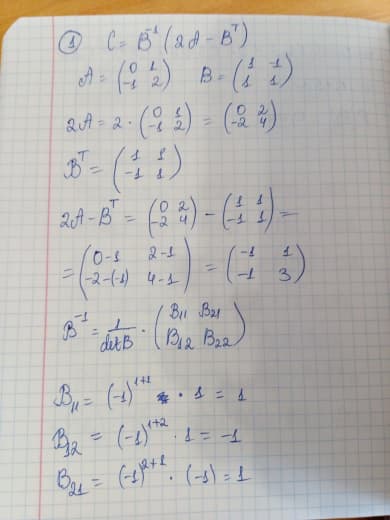 ① C = B⁻¹ (2A - Bᵀ)
A = (0 1; -1 2) B = (1 -1; 1 1)
2A = 2 · (0 1; -1 2) = (0 2; -2 4)
Bᵀ = (1 1; -1 1)
2A - Bᵀ = (0 2; -2 4) - (1 1; -1 1) =
= (0-1 2-1; -2-(-1) 4-1) = (-1 1; -1 3)
B⁻¹ = 1/detB · (B₁₁ B₂₁; B₁₂ B₂₂)
B₁₁ = (-1)¹⁺¹ · 1 = 1
B₁₂ = (-1)¹⁺² · 1 = -1
B₂₁ = (-1)²⁺¹ · (-1) = 1